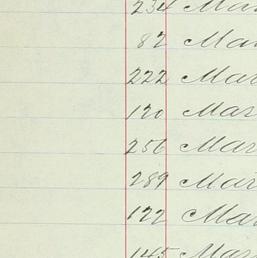 234 Mar
87 Mar
222 Mar
170 Mar
256 Mar
289 Mar
122 Mar
145 Mar